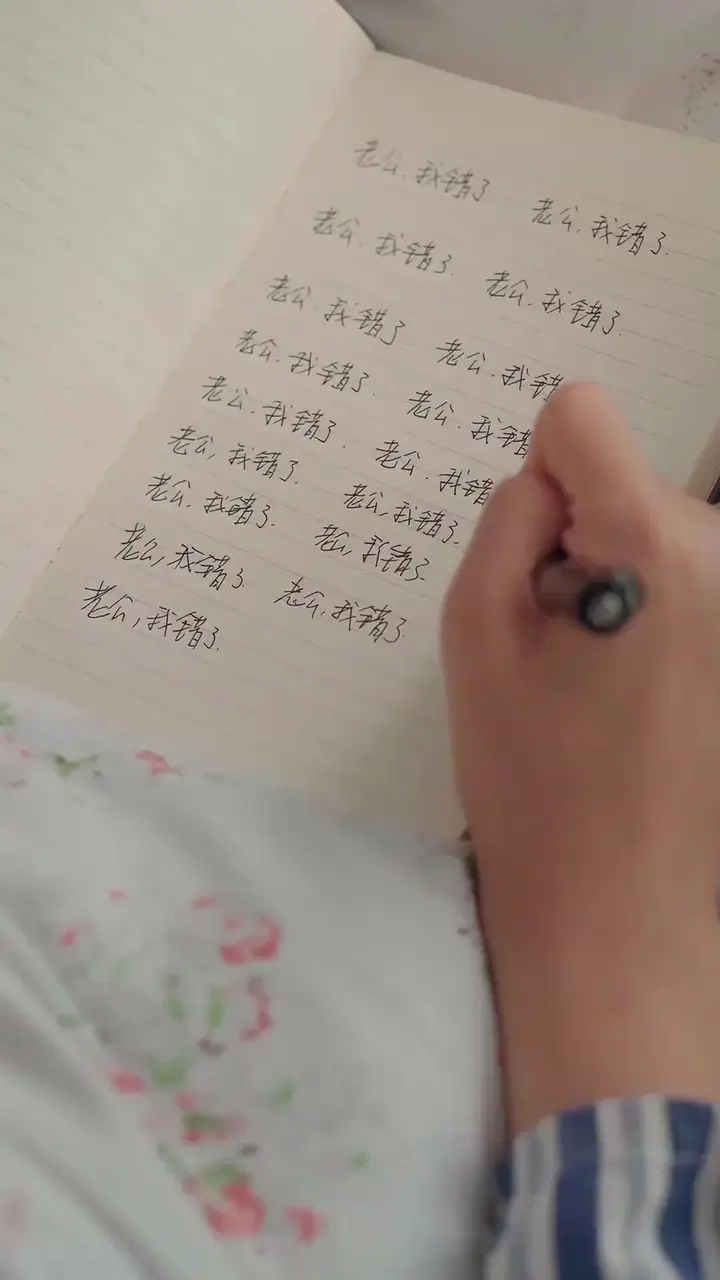 老公.我错了 老公,我错了.
老公.我错了. 老公.我错了.
老公.我错了 老公.我错
老公.我错了. 老公.我错
老公.我错了. 老公.我错
老公,我错了. 老公,我错了.
老公.我错了. 老公,我错了.
老公,我错了. 老公,我错了.
老公,我错了.